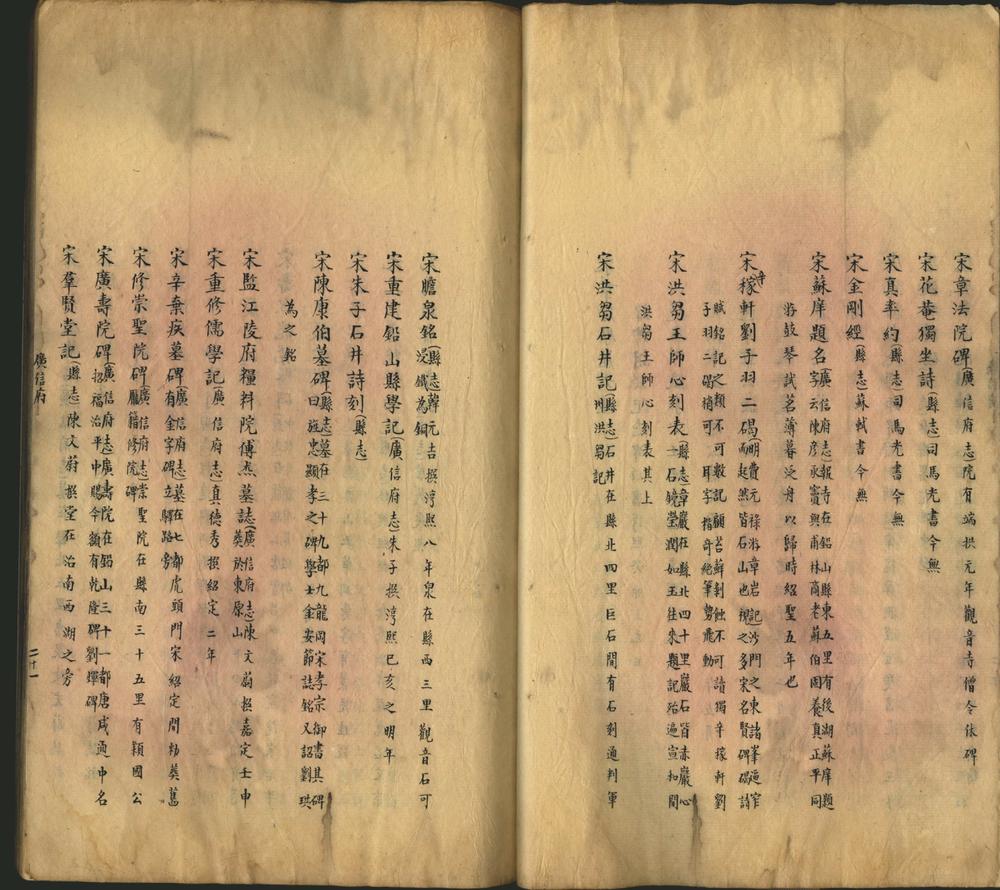 宋章法院碑（廣信府志院有端拱元年觀音寺僧令依碑
宋花菴獨坐詩（縣志司馬光書今無
宋真率約（縣志司馬光書今無
宋金剛經（縣志蘇軾書今無
宋蘇庠題名（廣信府志報寺在鉛山縣東五里有後湖蘇庠題
字云陳彥承竇與甫林商老蘇伯固養真正平同
游鼓琴試茗薄暮泛舟以歸時紹聖五年也
宋辛稼軒劉子羽二碣（明費元祿游章岩記沙門之東諸峯逼窄
而起然皆石山也視之多宋名賢碑碣詩
賦銘記之類不可數記顧苔蘚剝蝕不可讀獨辛稼軒劉
子羽二碣稍可耳字楷奇絕筆勢飛動
宋洪芻王師心刻表（縣志章巖在縣北四十里巖石皆赤巖心
一石鏡瑩潤如玉往朱題記殆遍宣和間
洪芻王師心刻表其上
宋洪芻石井記（縣志石井在縣北四里巨石間有石刻通判軍
州洪芻記
宋膽泉銘（縣志韓元吉撰淳熙八年泉在縣西三里觀音石可
浸鐵為銅
宋重建鉛山縣學記（廣信府志朱子撰淳熙己亥之明年
宋朱子石井詩刻（縣志
宋陳康伯墓碑（縣志墓在三十九都九龍岡宋孝宗御書其碑
曰旌忠顯孝之碑學士金安節誌銘又詔劉珙
為之銘
宋監江陵府糧料院傅杰墓誌（廣信府志陳文蔚撰嘉定壬申
葬於東原山
宋重修儒學記（廣信府志真德秀撰紹定二年
宋辛棄疾墓碑（廣信府志墓在七都虎頭門宋紹定間勑葬舊
有金字碑立驛路旁
宋修崇聖院碑（廣信府志崇聖院在縣南三十五里有穎國公
龐籍修院碑
宋廣壽院碑（廣信府志廣壽院在鉛山三十一都唐咸通中名
招福治平中賜今額有乾隆碑劉煇碑
宋羣賢堂記（縣志陳文蔚撰堂在治南西湖之旁
廣信府
二十一